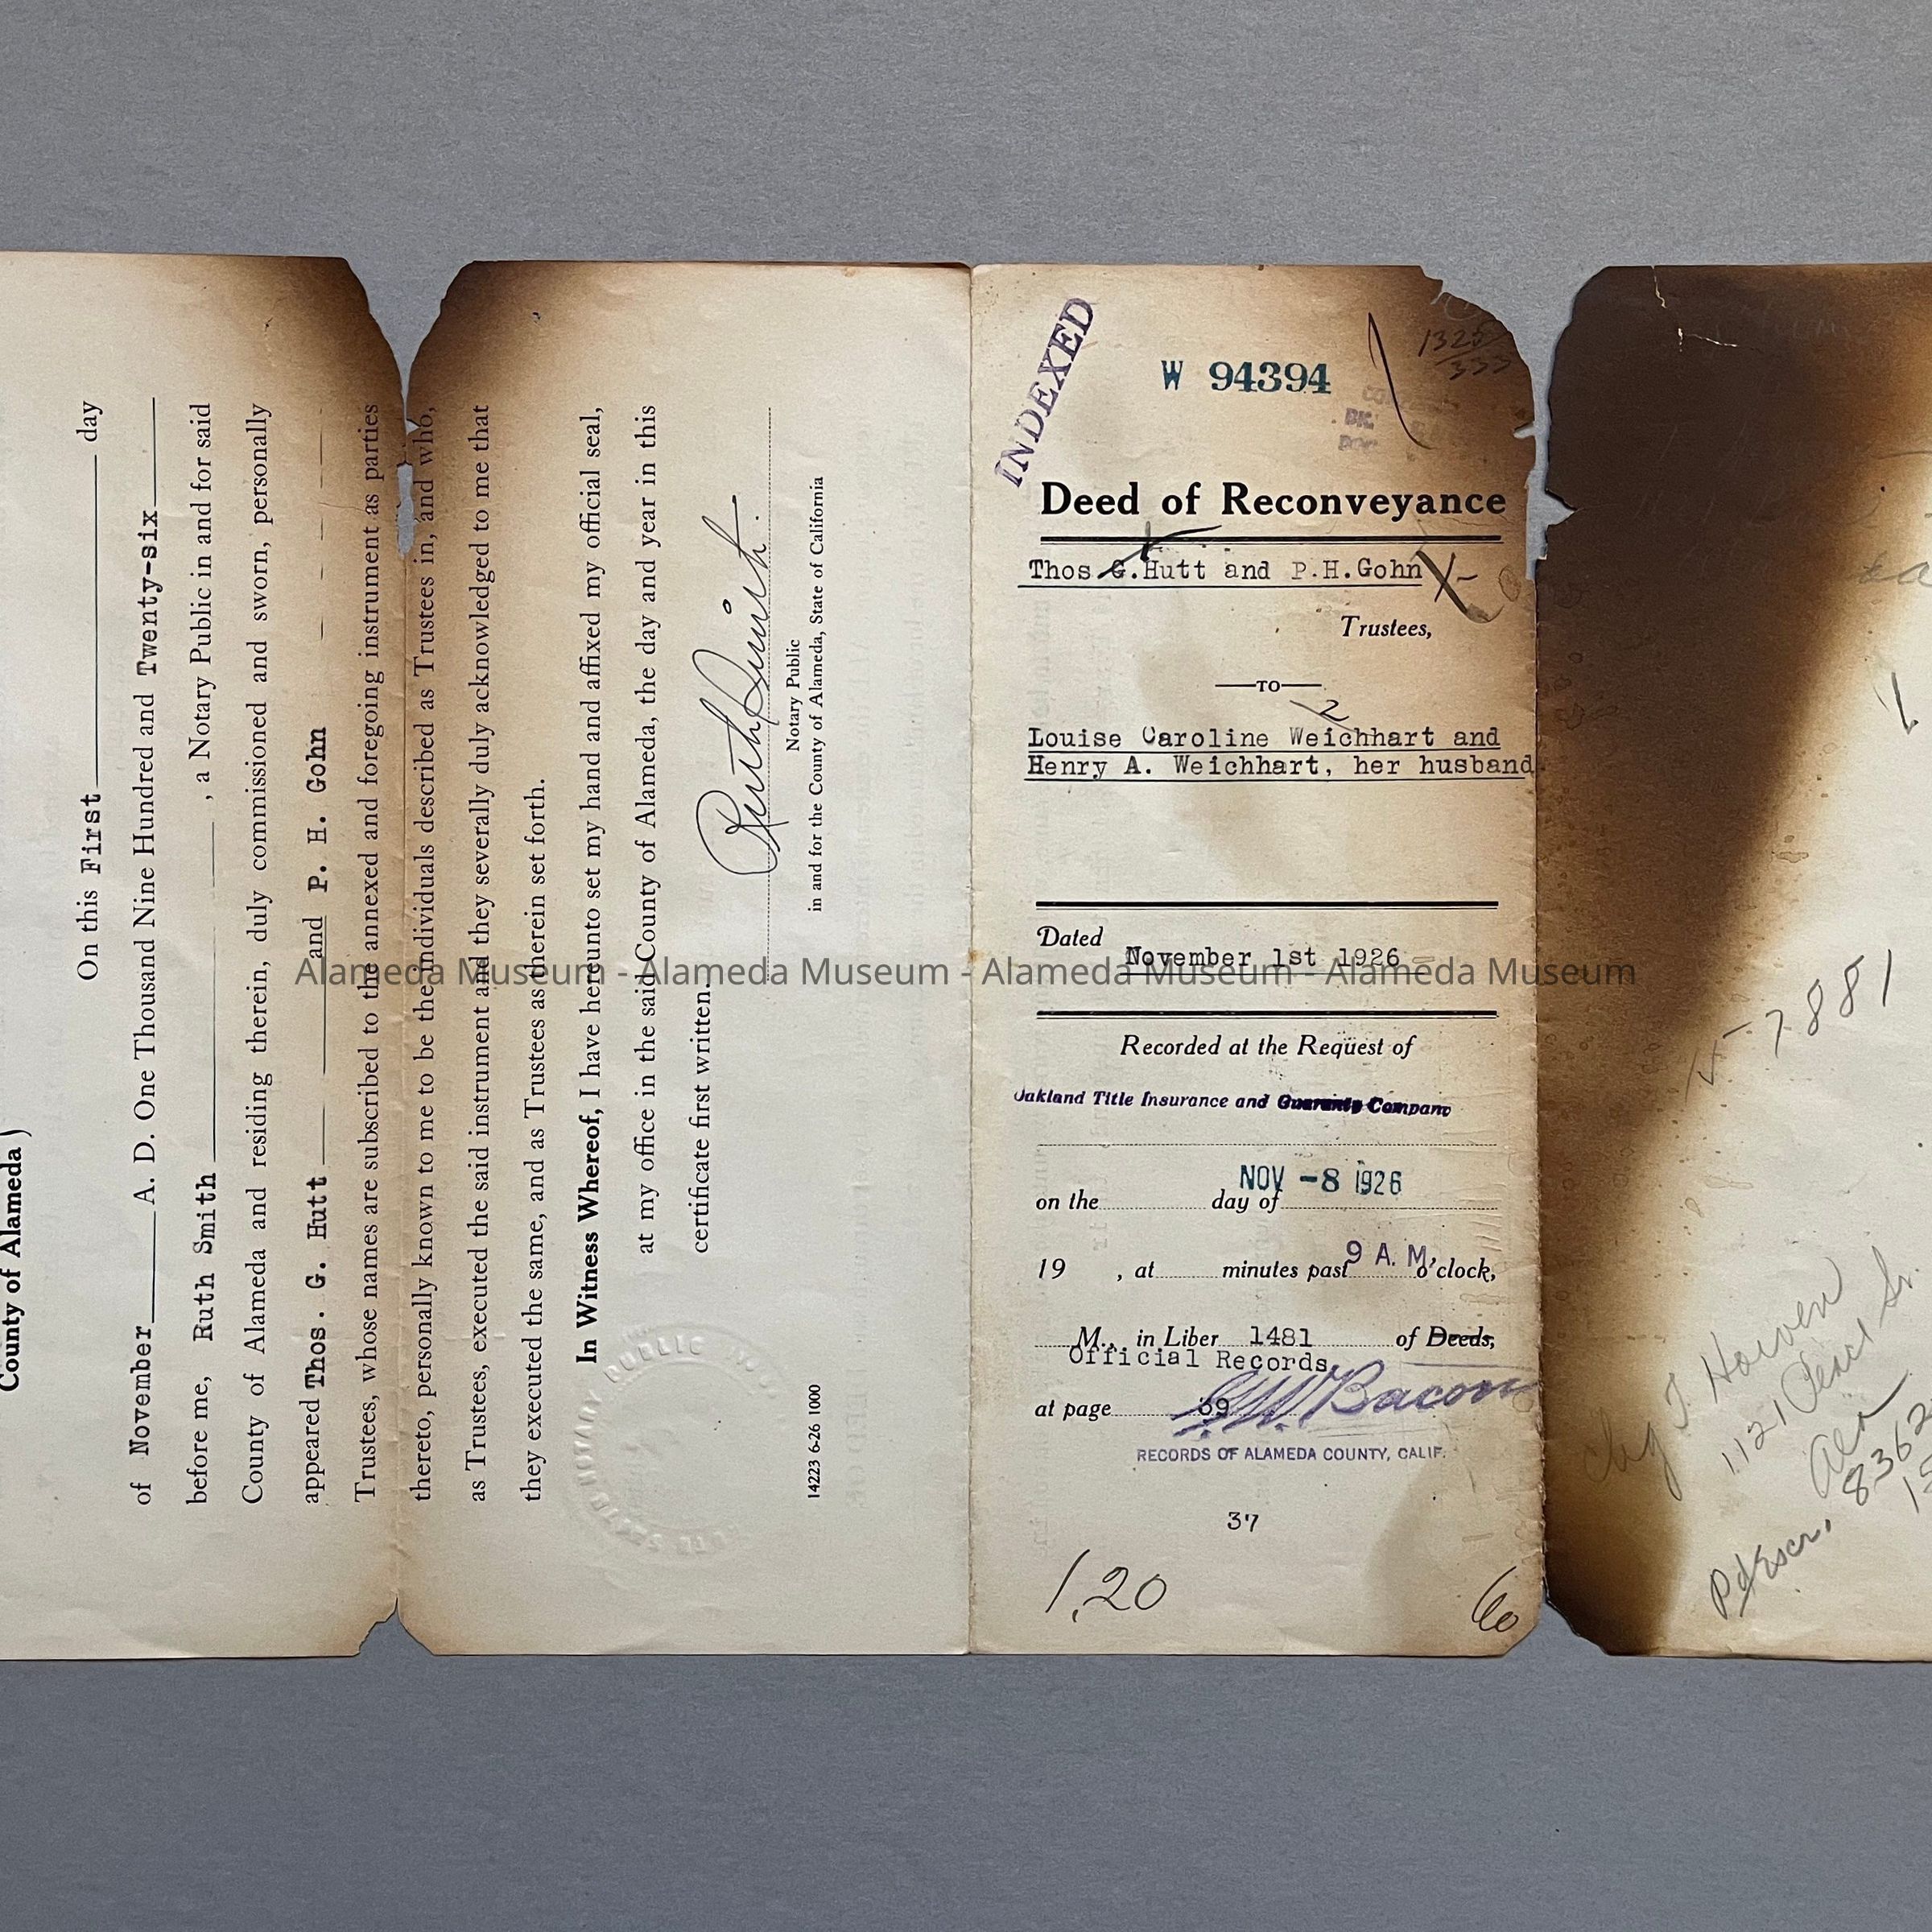 County of Alameda )
On this First day
of November A. D. One Thousand Nine Hundred and Twenty-six
before me, Ruth Smith , a Notary Public in and for said
County of Alameda and residing therein, duly commissioned and sworn, personally
appeared Thos. G. Hutt and P. H. Gohn
Trustees, whose names are subscribed to the annexed and foregoing instrument as parties
thereto, personally known to me to be the individuals described as Trustees in, and who,
as Trustees, executed the said instrument and they severally duly acknowledged to me that
they executed the same, and as Trustees as therein set forth.
In Witness Whereof, I have hereunto set my hand and affixed my official seal,
at my office in the said County of Alameda, the day and year in this
certificate first written.
Ruth Smith
Notary Public
in and for the County of Alameda, State of California
14223 6-26 1000
NOTARY PUBLIC
INDEXED
W 94394
1325
333
Deed of Reconveyance
Thos G. Hutt and P.H.Gohn
Trustees,
TO
2
Louise Caroline Weichhart and
Henry A. Weichhart, her husband
Dated November 1st 1926
Recorded at the Request of
Oakland Title Insurance and Guaranty Company
on the day of NOV -8 1926
19 , at minutes past 9 A. M. o'clock,
M., in Liber 1481 of Deeds,
Official Records
at page 69
G W Bacon
RECORDS OF ALAMEDA COUNTY, CALIF.
37
1.20
60
7881
1121
Ala
8362
Alameda Museum - Alameda Museum - Alameda Museum - Alameda Museum